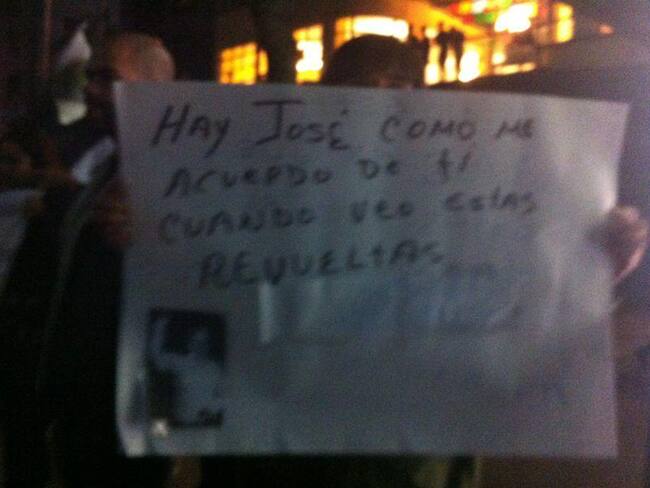 HAY JOSÉ COMO ME
ACUERDO DE ti
CUANDO VEO EStAS
REVUELtAS